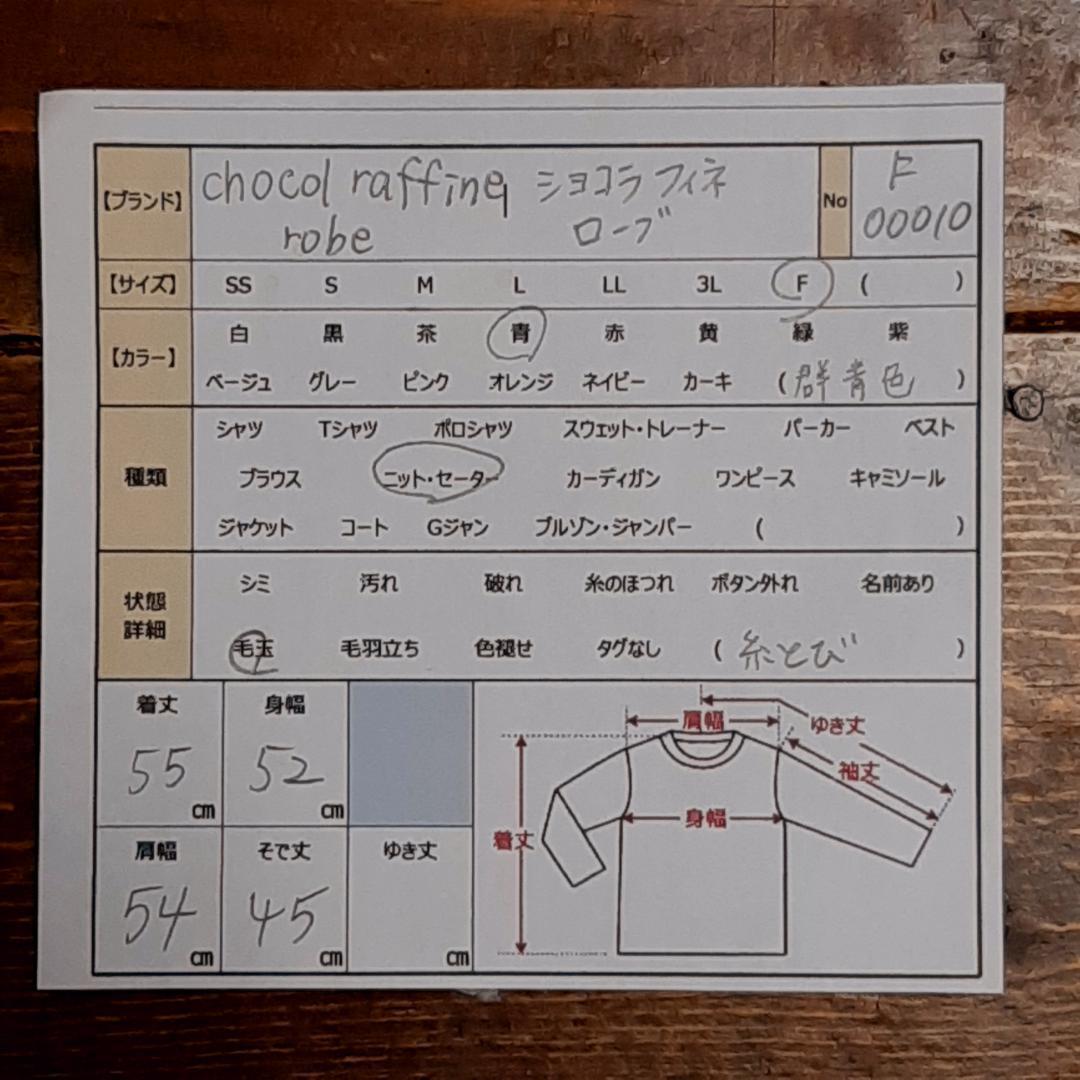 【ブランド】 chocol raffine ショコラ フィネ No F
robe ローブ 00010
【サイズ】 SS S M L LL 3L F ( )
【カラー】 白 黒 茶 青 赤 黄 緑 紫
ベージュ グレー ピンク オレンジ ネイビー カーキ (群青色)
種類 シャツ Tシャツ ポロシャツ スウェット・トレーナー パーカー ベスト
ブラウス ニット・セーター カーディガン ワンピース キャミソール
ジャケット コート Gジャン ブルゾン・ジャンパー ( )
状態 シミ 汚れ 破れ 糸のほつれ ボタン外れ 名前あり
詳細 毛玉 毛羽立ち 色褪せ タグなし (糸とび)
着丈 身幅
55 cm 52 cm
肩幅 そで丈 ゆき丈
54 cm 45 cm cm
肩幅 ゆき丈
袖丈
身幅
着丈